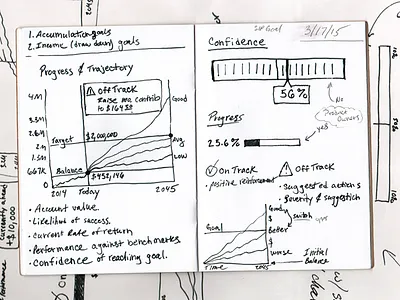 1. Accumulation goals
2. Income (draw down) goals
Progress & Trajectory
4M
3.3M
2.6M
2M
1.3M
667K
0
Target
$2,000,000
Balance
$452,146
⚠ Off Track
Raise contrib
to $164
Good
Avg
Low
2014 Today 2045
• Account value.
• Likelihood of success.
• Current Rate of return
• Performance against benchmarks.
• Confidence of reaching goal.
3/17/15
Confidence
56%
No
Produce
Progress
yes
25.6%
On Track
• positive reinforcement
⚠ Off Track
• Suggested actions
• Severity & suggestion
Goal
Time
2045
Good
$
switch
Better
$
worse
Initial
Balance
2045
+$10,000